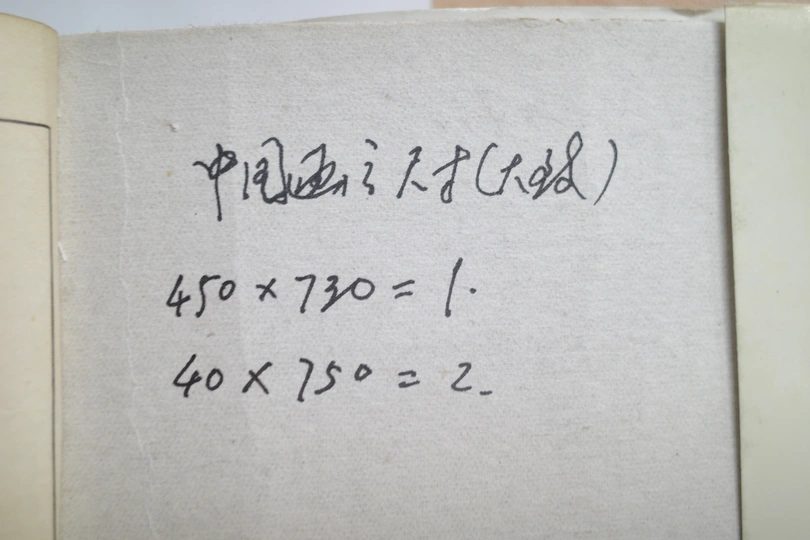 中国画之尺寸（大致）
450×730=1.
40×750=2.